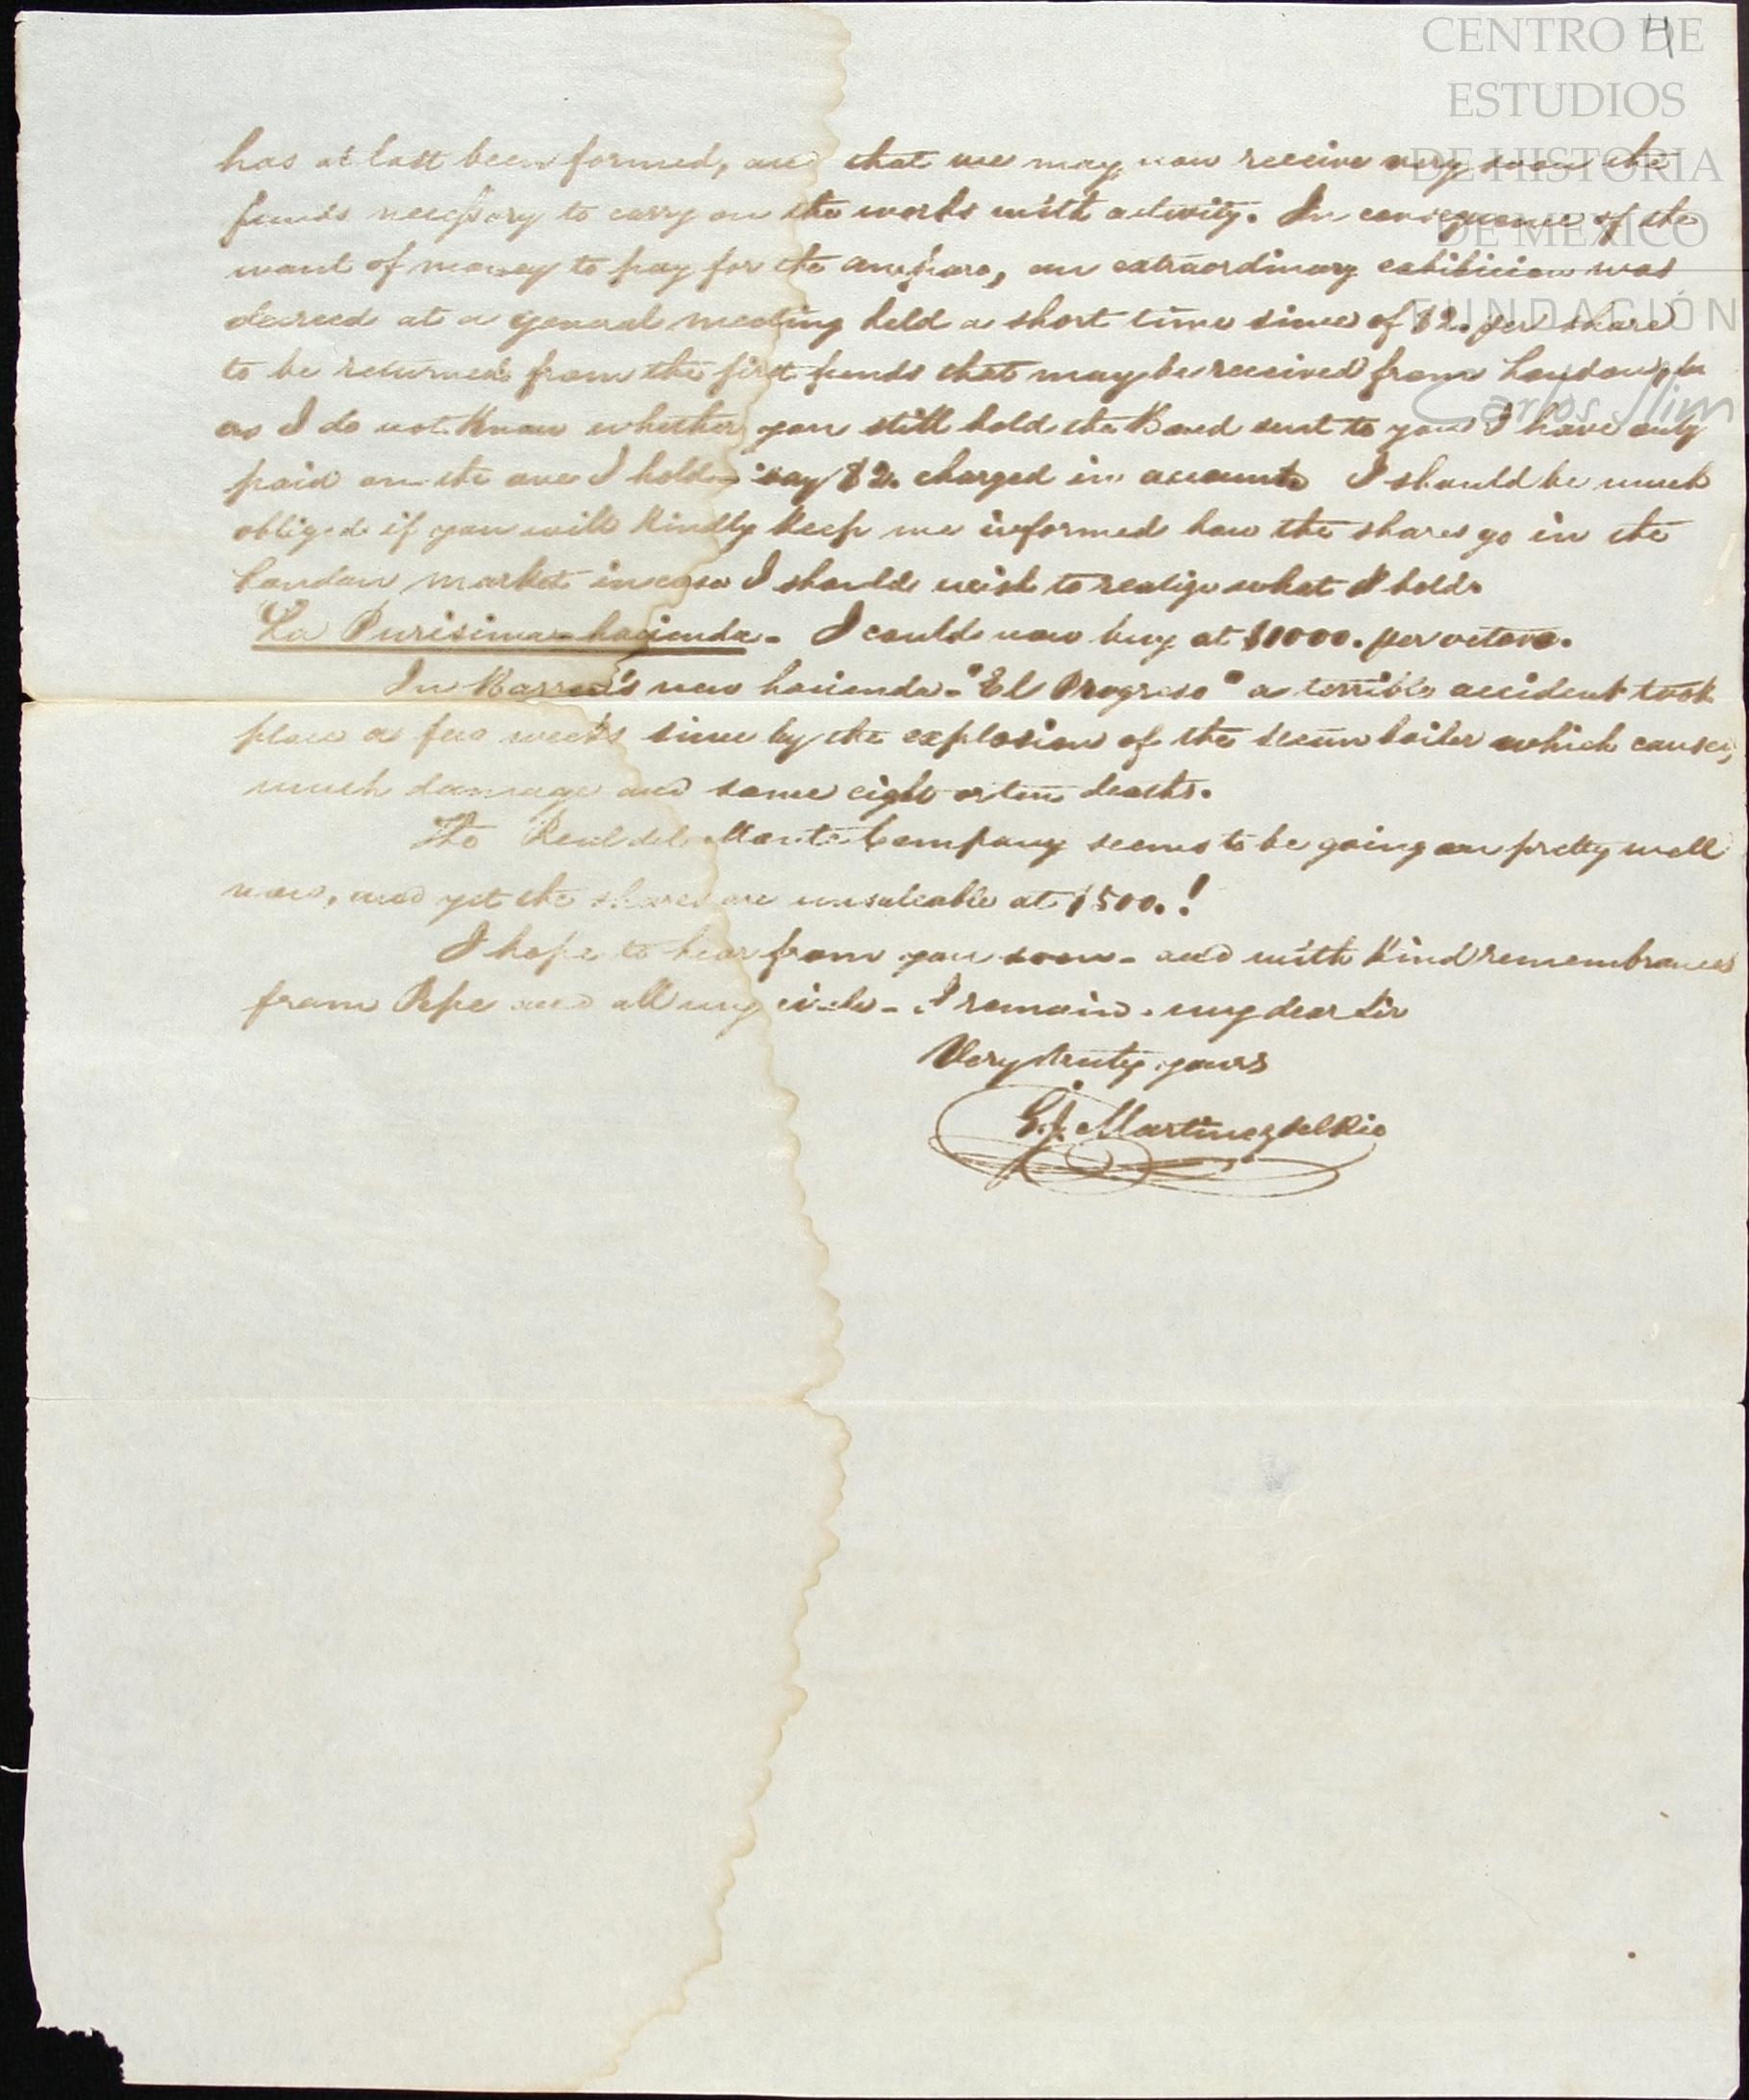 4
CENTRO DE
ESTUDIOS
DE HISTORIA
DE MEXICO
FUNDACIÓN
Carlos Slim
has at last been formed, and that we may now receive very soon the
funds necessary to carry on the works with activity. In consequence of the
want of money to pay for the amparo, an extraordinary exhibicion was
decreed at a general meeting held a short time since of $2. per share
to be returned from the first funds that may be received from London,
as I do not Know whether you still hold the Bond sent to you I have only
paid on the one I hold - say $2. charged in account. I should be much
obliged if you will Kindly Keep me informed how the shares go in the
London market in case I should wish to realize what I hold.
La Purisima hacienda - I could now buy at $1000. per octavo.
In Barron's new hacienda - "El Progreso" a terrible accident took
place a few weeks since by the explosion of the steam boiler which caused
much damage and some eight or ten deaths.
The Real del Monte Company seems to be going on pretty well
now, and yet the shares are unsaleable at $500.!
I hope to hear from you soon - and with Kind remembrances
from Pepe and all my circle - I remain - my dear Sir
Very truly yours
G. J. Martinez del Rio